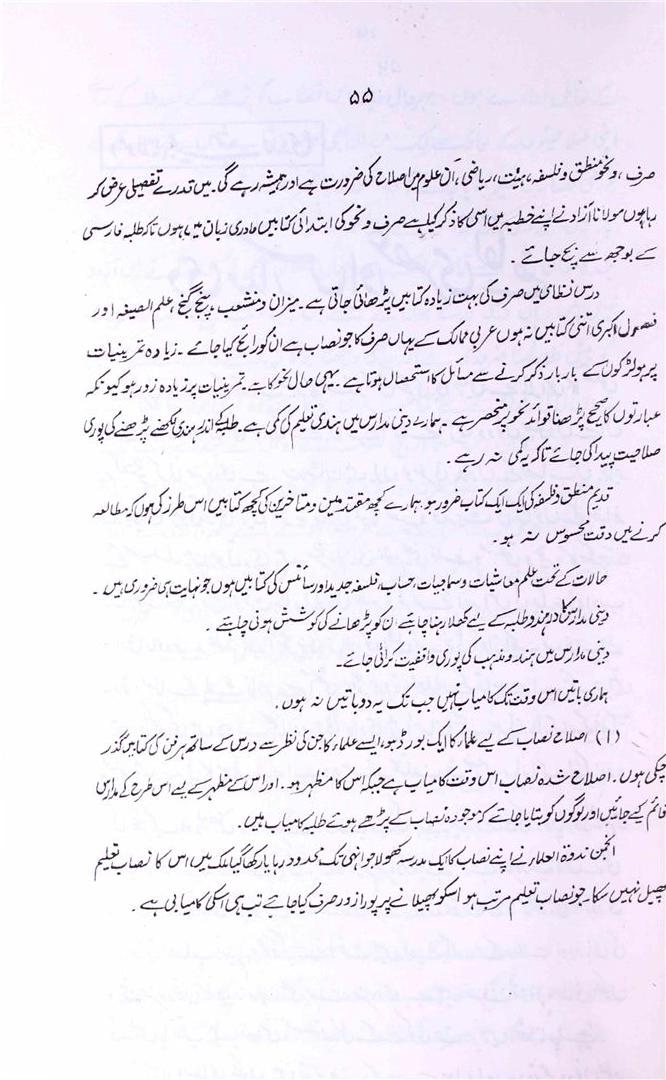 ۵۵
صرف، ونحو، منطق و فلسفہ، ہیئت، ریاضی، اُن علوم میں اصلاح کی ضرورت ہے اور ہمیشہ رہے گی۔ میں قدرے تفصیلی عرض کر
رہا ہوں مولانا آزاد نے اپنے خطبہ میں اسی کا ذکر کیا ہے صرف ونحو کی ابتدائی کتابیں مادری زبان میں ہوں تاکہ طلبہ فارسی
کے بوجھ سے بچ جائے۔
درس نظامی میں صرف کی بہت زیادہ کتابیں پڑھائی جاتی ہے۔ میزان و منشعب، پنج گنج، علم الصیغہ اور
فصول اکبری اتنی کتابیں نہ ہوں عربی ممالک کے یہاں صرف کا جو نصاب ہے ان کو رائج کیا جائے۔ زیادہ تمرینیات
پر ہو لڑکوں کے بار بار ذکر کرنے سے مسائل کا استحصال ہوتا ہے۔ یہی حال نحو کا ہے۔ تمرینیات پر زیادہ زور ہو کیونکہ
عبارتوں کا صحیح پڑھنا قواعد نحو پر منحصر ہے۔ ہمارے دینی مدارس میں ہندی تعلیم کی کمی ہے۔ طلبہ کے اندر ہندی لکھنے پڑھنے کی پوری
صلاحیت پیدا کی جائے تاکہ یہ کمی نہ رہے۔
قدیم منطق و فلسفہ کی ایک ایک کتاب ضرور ہو۔ ہمارے کچھ متقدمین و متاخرین کی کچھ کتابیں اس طرز کی ہوں کہ مطالعہ
کرنے میں دقت محسوس نہ ہو۔
حالات کے تحت علم معاشیات و سماجیات، حساب، فلسفہ جدید اور سائنس کی کتابیں ہوں جو نہایت ہی ضروری ہیں۔
دینی مدارس کا در ہندو طلبہ کے لیے کھلا رہنا چاہئے ان کو پڑھانے کی کوشش ہونی چاہئے۔
دینی مدارس میں ہندو مذہب کی پوری واقفیت کرائی جائے۔
ہماری باتیں اس وقت تک کامیاب نہیں جب تک یہ دو باتیں نہ ہوں۔
(۱) اصلاح نصاب کے لیے علماء کا ایک بورڈ ہو، ایسے علماء کا جن کی نظر سے درس کے ساتھ ہر فن کی کتابیں گذر
چکی ہوں۔ اصلاح شدہ نصاب اس وقت کامیاب ہے جبکہ اس کا مظہر ہو۔ اور اس کے مظہر کے لیے اس طرح کے مدارس
قائم کیے جائیں اور لوگوں کو بتایا جائے کہ موجودہ نصاب کے پڑھے ہوئے طلبہ کامیاب ہیں۔
انجمن ندوۃ العلماء نے اپنے نصاب کا ایک مدرسہ کھولا جو انہی تک محدود رہا یا رکھا گیا ملک میں اس کا نصاب تعلیم
پھیل نہیں سکا۔ جو نصاب تعلیم مرتب ہو اسکو پھیلانے پر پورا زور صرف کیا جائے تب ہی اسکی کامیابی ہے۔